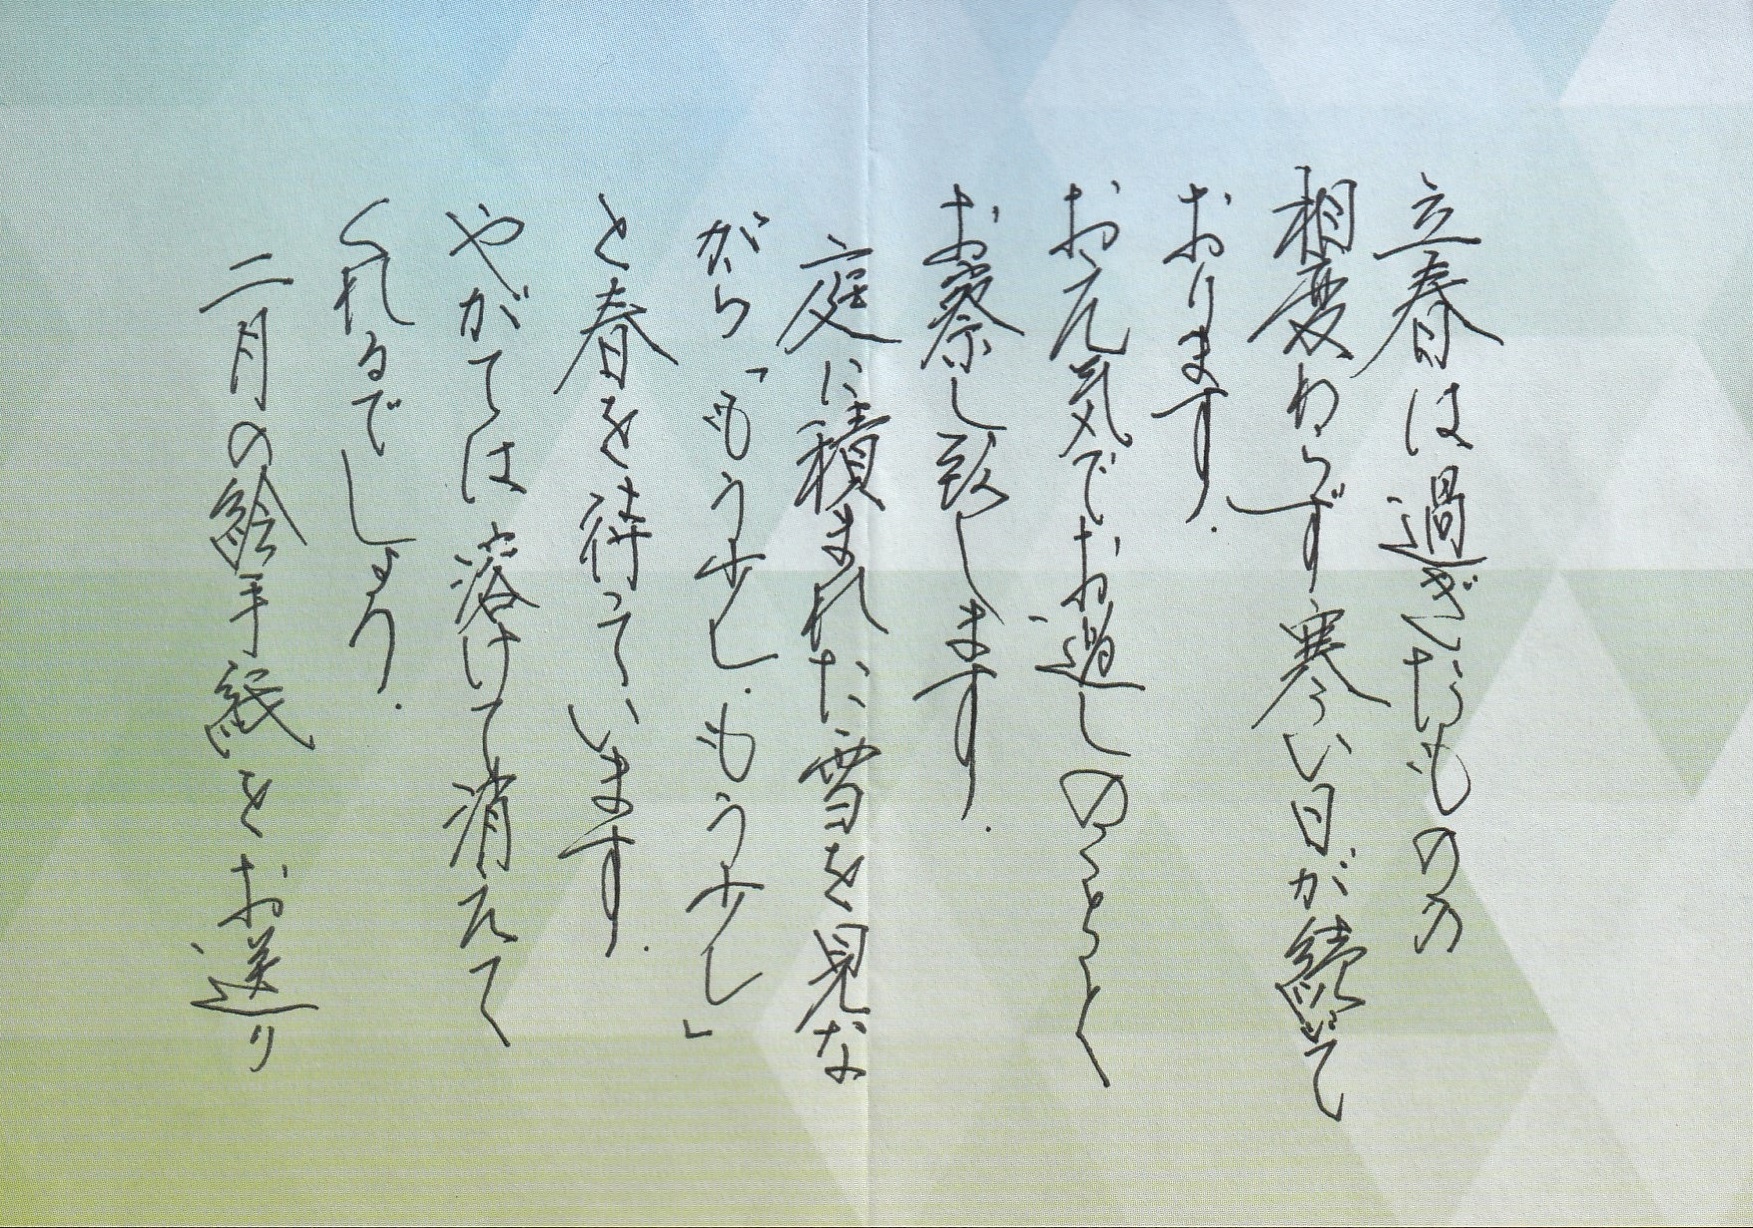 立春は過ぎたものの
相変わらず寒い日が続いて
おります.
お元気でお過しのことと
お察し致します.
庭に積まれた雪を見な
がら「もう少し.もう少し」
と春を待っています.
やがては溶けて消えて
くれるでしょう.
二月の絵手紙をお送り